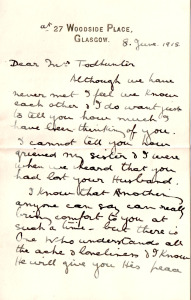 at 27 WOODSIDE PLACE,
GLASGOW.
8. June 1918
Dear Mrs Todhunter
Although we have
never met I feel we know
each other & I do want just
to tell you how much I
have been thinking of you.
I cannot tell you how
grieved my sister & I were
when we heard that you
had lost your Husband.
I know that nothing
anyone can say can really
bring comfort to you at
such a time - but there is
One who understands all
the ache & loneliness & I know
He will give you His peace